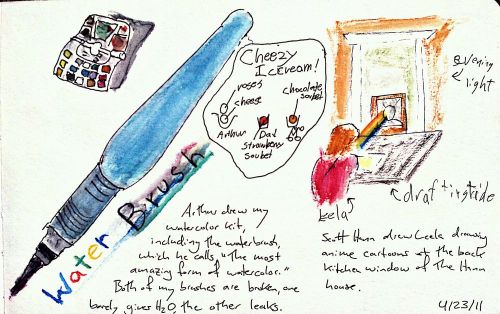 Cheezy
Icecream!
roses
cheese
chocolate
sorbet
Arthur
Dad
Strawberry
Sorbet
Evening
light
Water Brush
Leela
drafting side
Arthur drew my
watercolor kit,
including the waterbrush,
which he calls, "The most
amazing form of watercolor."
Both of my brushes are broken, one
barely gives H2O, the other leaks.
Scott Hunn drew Leela drawing
anime cartoons at the back
kitchen window of the Hunn
house.
4/23/11